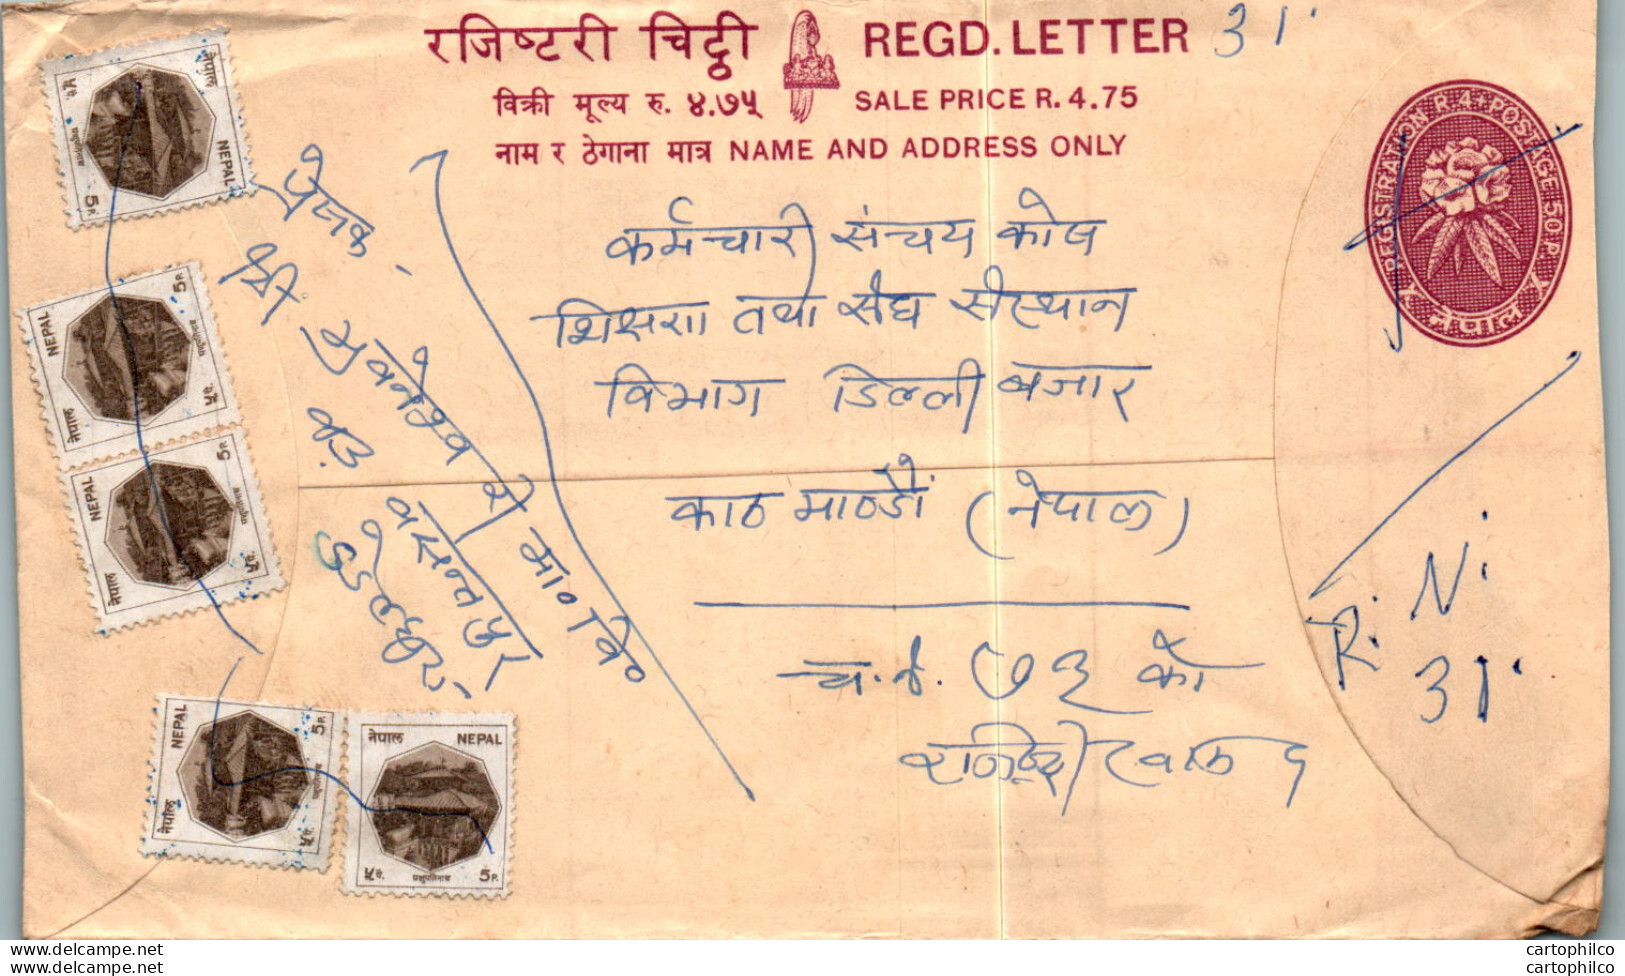 रजिष्टरी चिट्ठी REGD. LETTER 31
विक्री मूल्य रु. ४.७५ SALE PRICE R. 4.75
नाम र ठेगाना मात्र NAME AND ADDRESS ONLY
REGISTRATION R 4. POSTAGE 50 P.
नेपाल
कर्मचारी संचय कोष
शिक्षा तथा संघ संस्थान
विभाग डिल्ली बजार
काठमाण्डौं (नेपाल)
च.नं. ७३ को
R. N.
31
प्रेषक -
श्री भुवनेश्वरी मा० वि०
वसन्तपुर
नेपाल NEPAL
५ पै. 5 P.
NEPAL नेपाल
5 P. ५ पै.
NEPAL नेपाल
5 P. ५ पै.
NEPAL नेपाल
5 P. ५ पै.
नेपाल NEPAL
५ पै. पशुपतिनाथ 5 P.
www.delcampe.net
www.delcampe.net
cartophilco
cartophilco